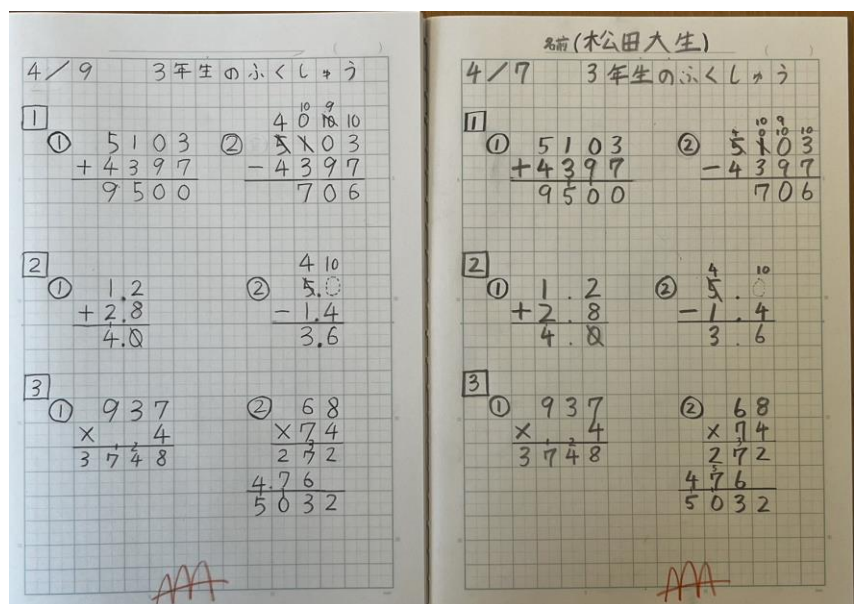 4/9 3年生のふくしゅう
1
① 5103
+4397
9500
② 4 10 9 10
0 10
5103
-4397
706
2
① 1.2
+2.8
4.0
② 4 10
5.0
-1.4
3.6
3
① 937
× 4
1 2
3748
② 68
×74
3
272
4.76
5032
AAA
名前(松田大生)
4/7 3年生のふくしゅう
1
① 5103
+4397
9500
② 10 9
4 0 10 10
5103
-4397
706
2
① 1.2
+2.8
4.0
② 4 10
5.0
-1.4
3.6
3
① 937
× 4
1 2
3748
② 68
×74
3
272
5
476
5032
AAA